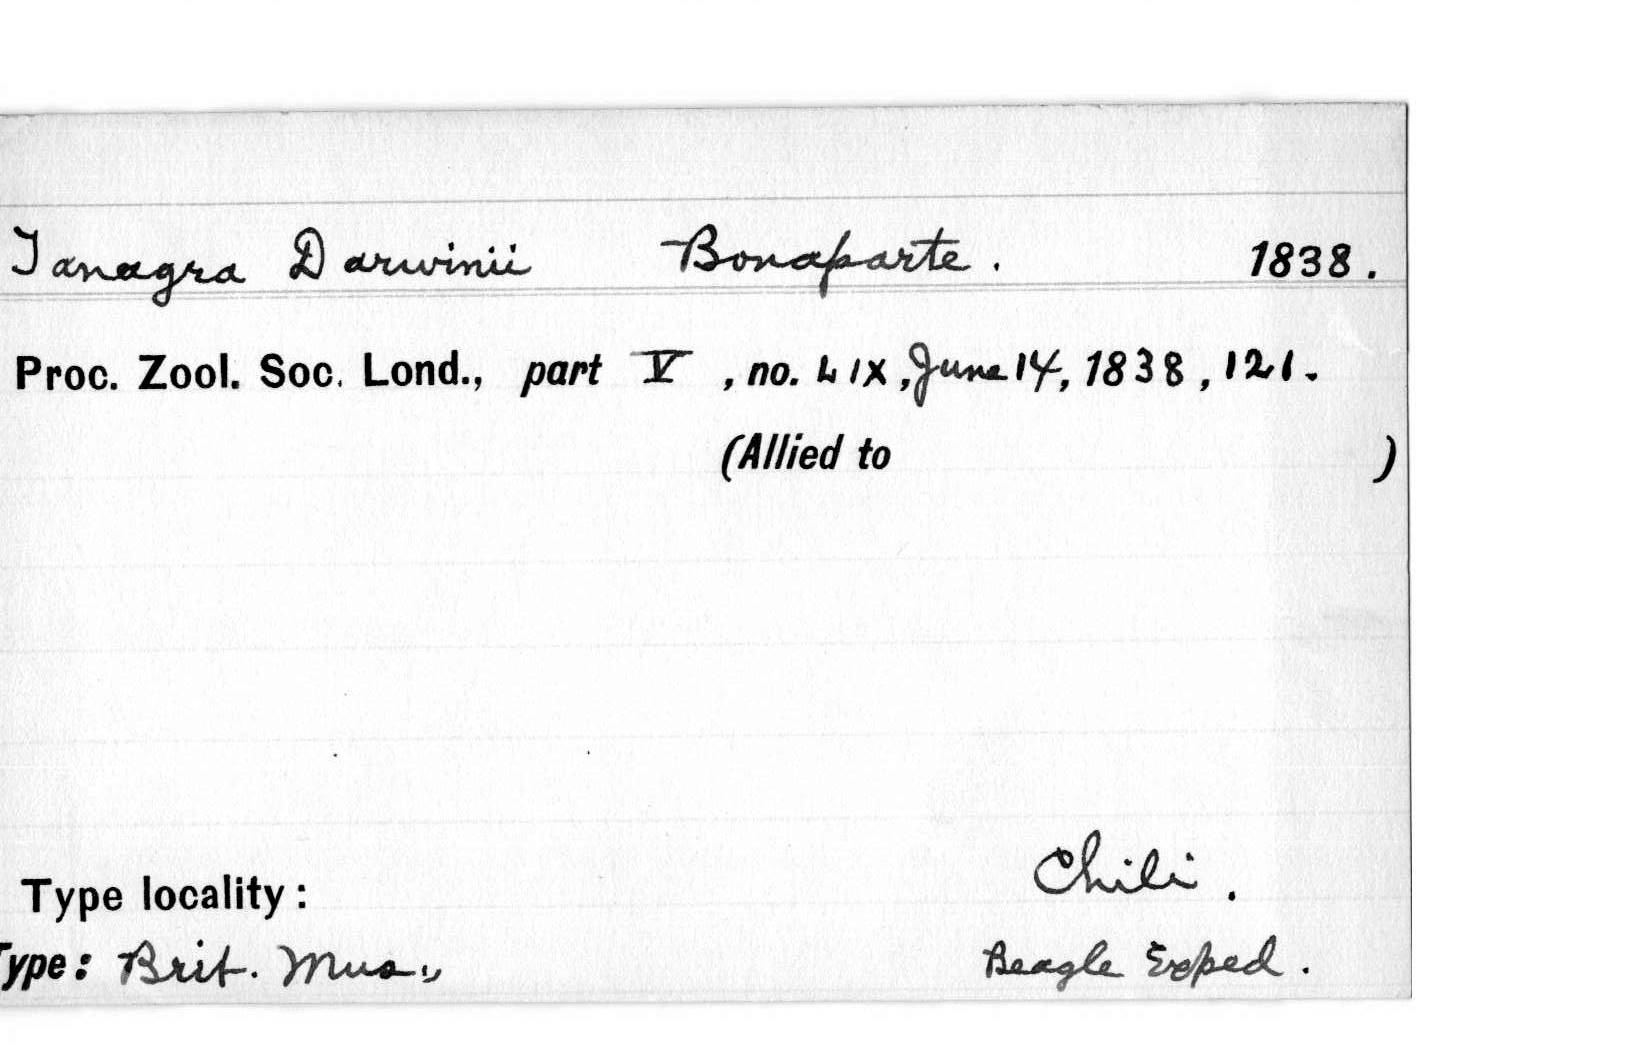 Tanagra Darwinii Bonaparte. 1838.
Proc. Zool. Soc. Lond., part V, no. LIX, June 14, 1838, 121.
(Allied to )
Chili.
Type locality:
Type: Brit. Mus., Beagle Exped.